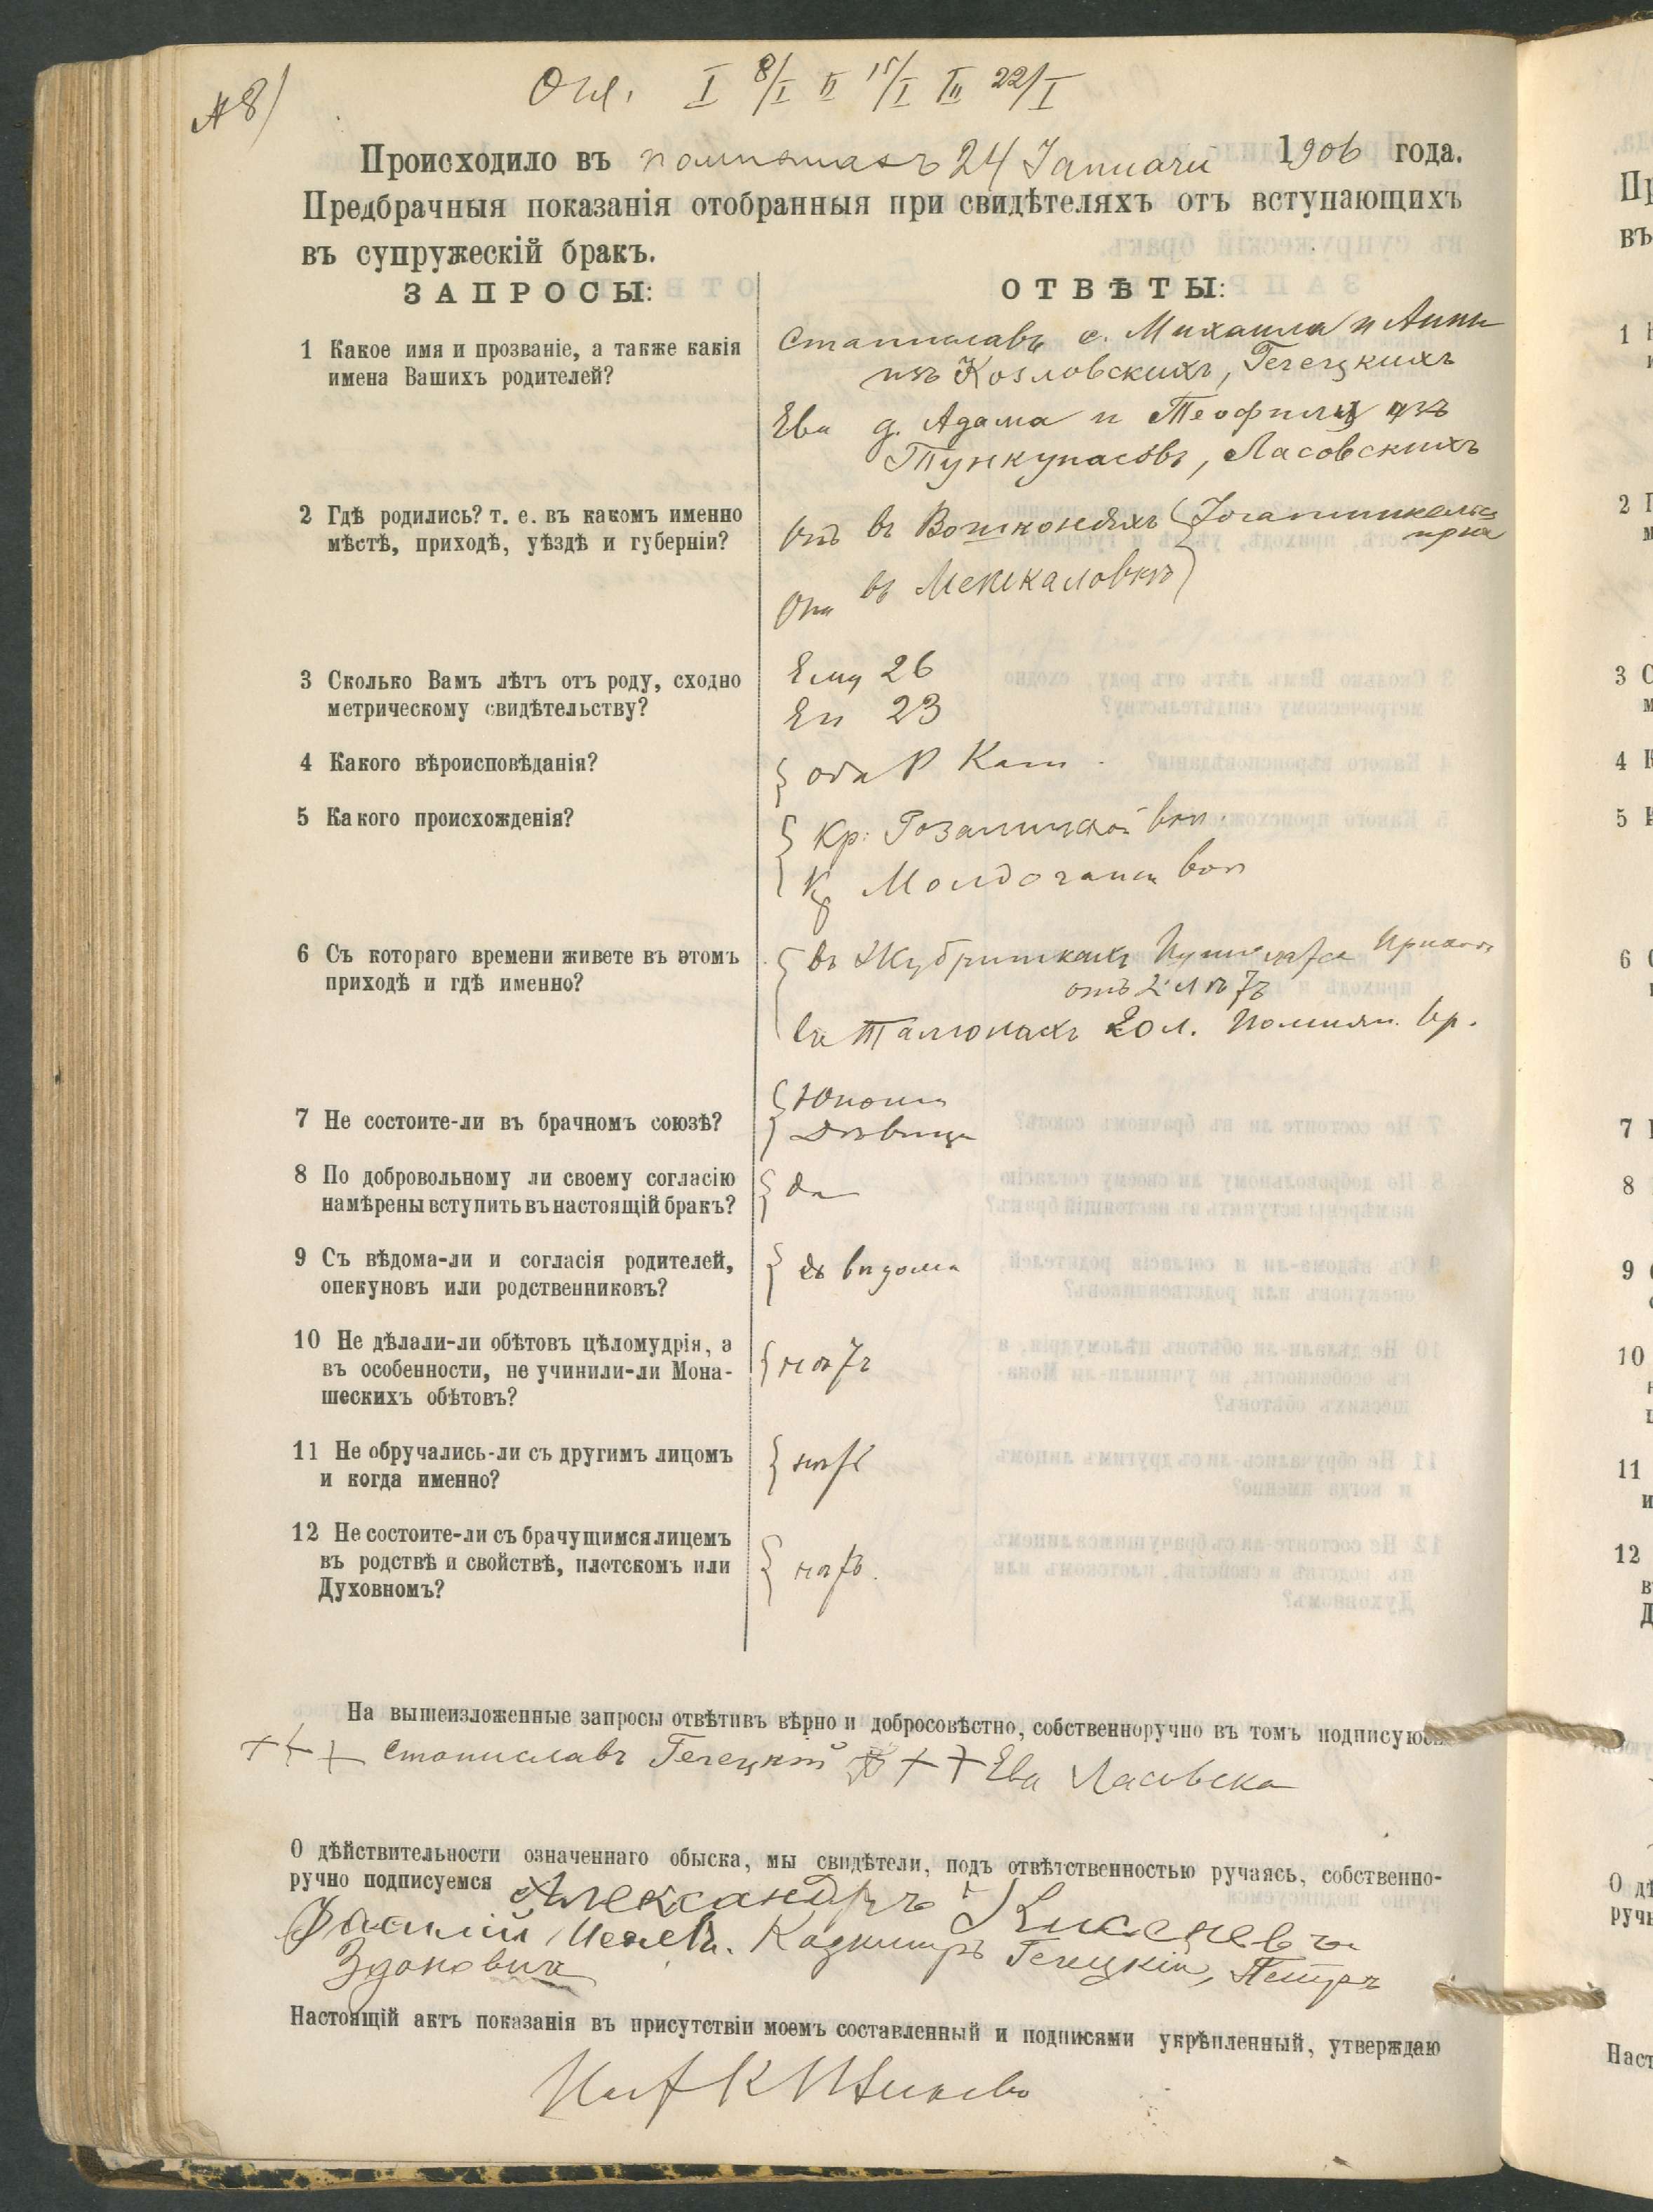 № 8)
Огл. I 8/I II 15/I III 22/I
Происходило въ 24 Января 1906 года.
Предбрачныя показанія отобранныя при свидѣтеляхъ отъ вступающихъ
въ супружескій бракъ.
ЗАПРОСЫ:
ОТВѢТЫ:
1 Какое имя и прозваніе, а также какія
имена Вашихъ родителей?
Станиславъ с. Михаила и Анны
изъ Козловскихъ, Гечецкихъ
Ева д. Адама и Теофили изъ
Тункунасовъ, Ласовскихъ
2 Гдѣ родились? т. е. въ какомъ именно
мѣстѣ, приходѣ, уѣздѣ и губерніи?
Онъ въ
Она въ
3 Сколько Вамъ лѣтъ отъ роду, сходно
метрическому свидѣтельству?
Ему 26
Ей 23
4 Какого вѣроисповѣданія?
оба Р Кат.
5 Какого происхожденія?
Кр: вол.
Кр вол
6 Съ котораго времени живете въ этомъ
приходѣ и гдѣ именно?
въ Жубришкахъ
отъ 2 лѣтъ
въ 20 л. пр.
7 Не состоите-ли въ брачномъ союзѣ?
Юноша
Дѣвица
8 По добровольному ли своему согласію
намѣрены вступить въ настоящій бракъ?
да
9 Съ вѣдома-ли и согласія родителей,
опекуновъ или родственниковъ?
съ вѣдома
10 Не дѣлали-ли обѣтовъ цѣломудрія, а
въ особенности, не учинили-ли Мона-
шескихъ обѣтовъ?
нѣтъ
11 Не обручались-ли съ другимъ лицомъ
и когда именно?
нѣтъ
12 Не состоите-ли съ брачущимся лицемъ
въ родствѣ и свойствѣ, плотскомъ или
Духовномъ?
нѣтъ.
На вышеизложенные запросы отвѣтивъ вѣрно и добросовѣстно, собственноручно въ томъ подписуюсь
+++ Станиславъ Гечецкій +++ Ева Ласовска
О дѣйствительности означеннаго обыска, мы свидѣтели, подъ отвѣтственностью ручаясь, собственно-
ручно подписуемся Александръ
Казимиръ Гечецкій, Петръ
Здановичъ
Настоящій актъ показанія въ присутствіи моемъ составленный и подписями укрѣпленный, утверждаю